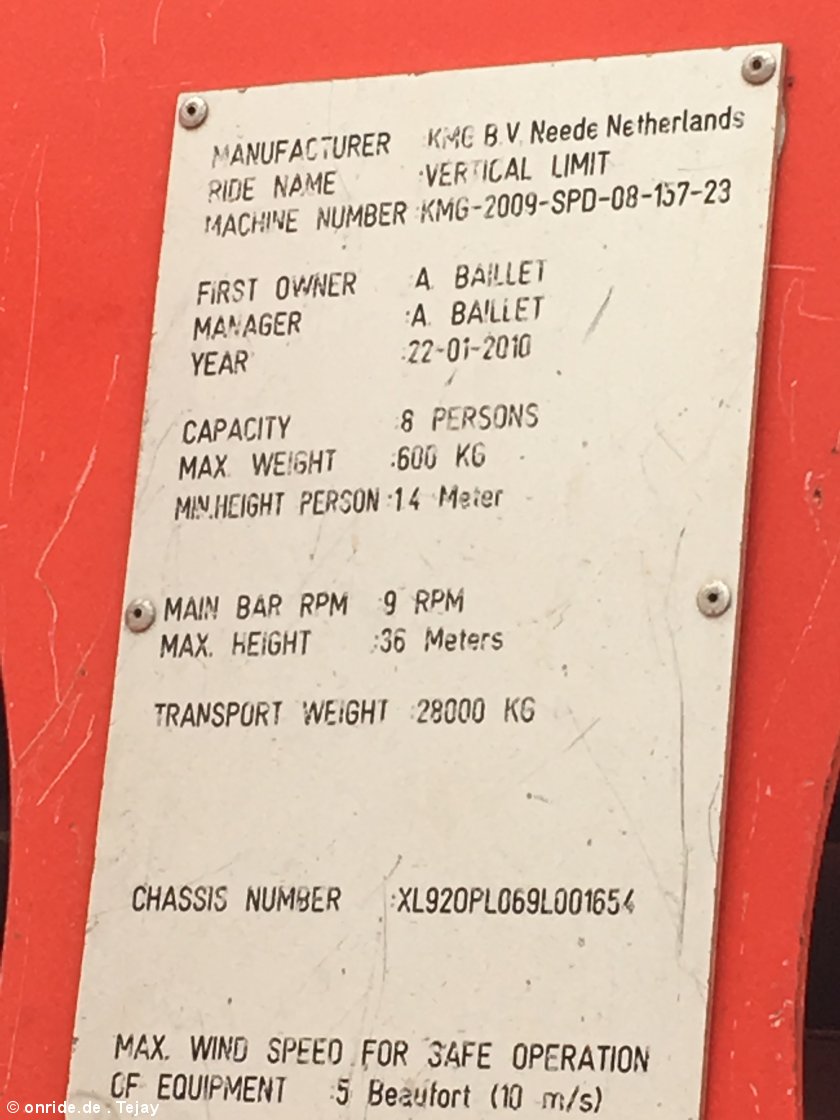 MANUFACTURER :KMG B.V. Neede Netherlands
RIDE NAME :VERTICAL LIMIT
MACHINE NUMBER :KMG-2009-SPD-08-157-23
FIRST OWNER :A. BAILLET
MANAGER :A. BAILLET
YEAR :22-01-2010
CAPACITY :8 PERSONS
MAX. WEIGHT :600 KG
MIN.HEIGHT PERSON :1.4 Meter
MAIN BAR RPM :9 RPM
MAX. HEIGHT :36 Meters
TRANSPORT WEIGHT :28000 KG
CHASSIS NUMBER :XL920PL069L001654
MAX. WIND SPEED FOR SAFE OPERATION
OF EQUIPMENT :5 Beaufort (10 m/s)
© onride.de . Tejay